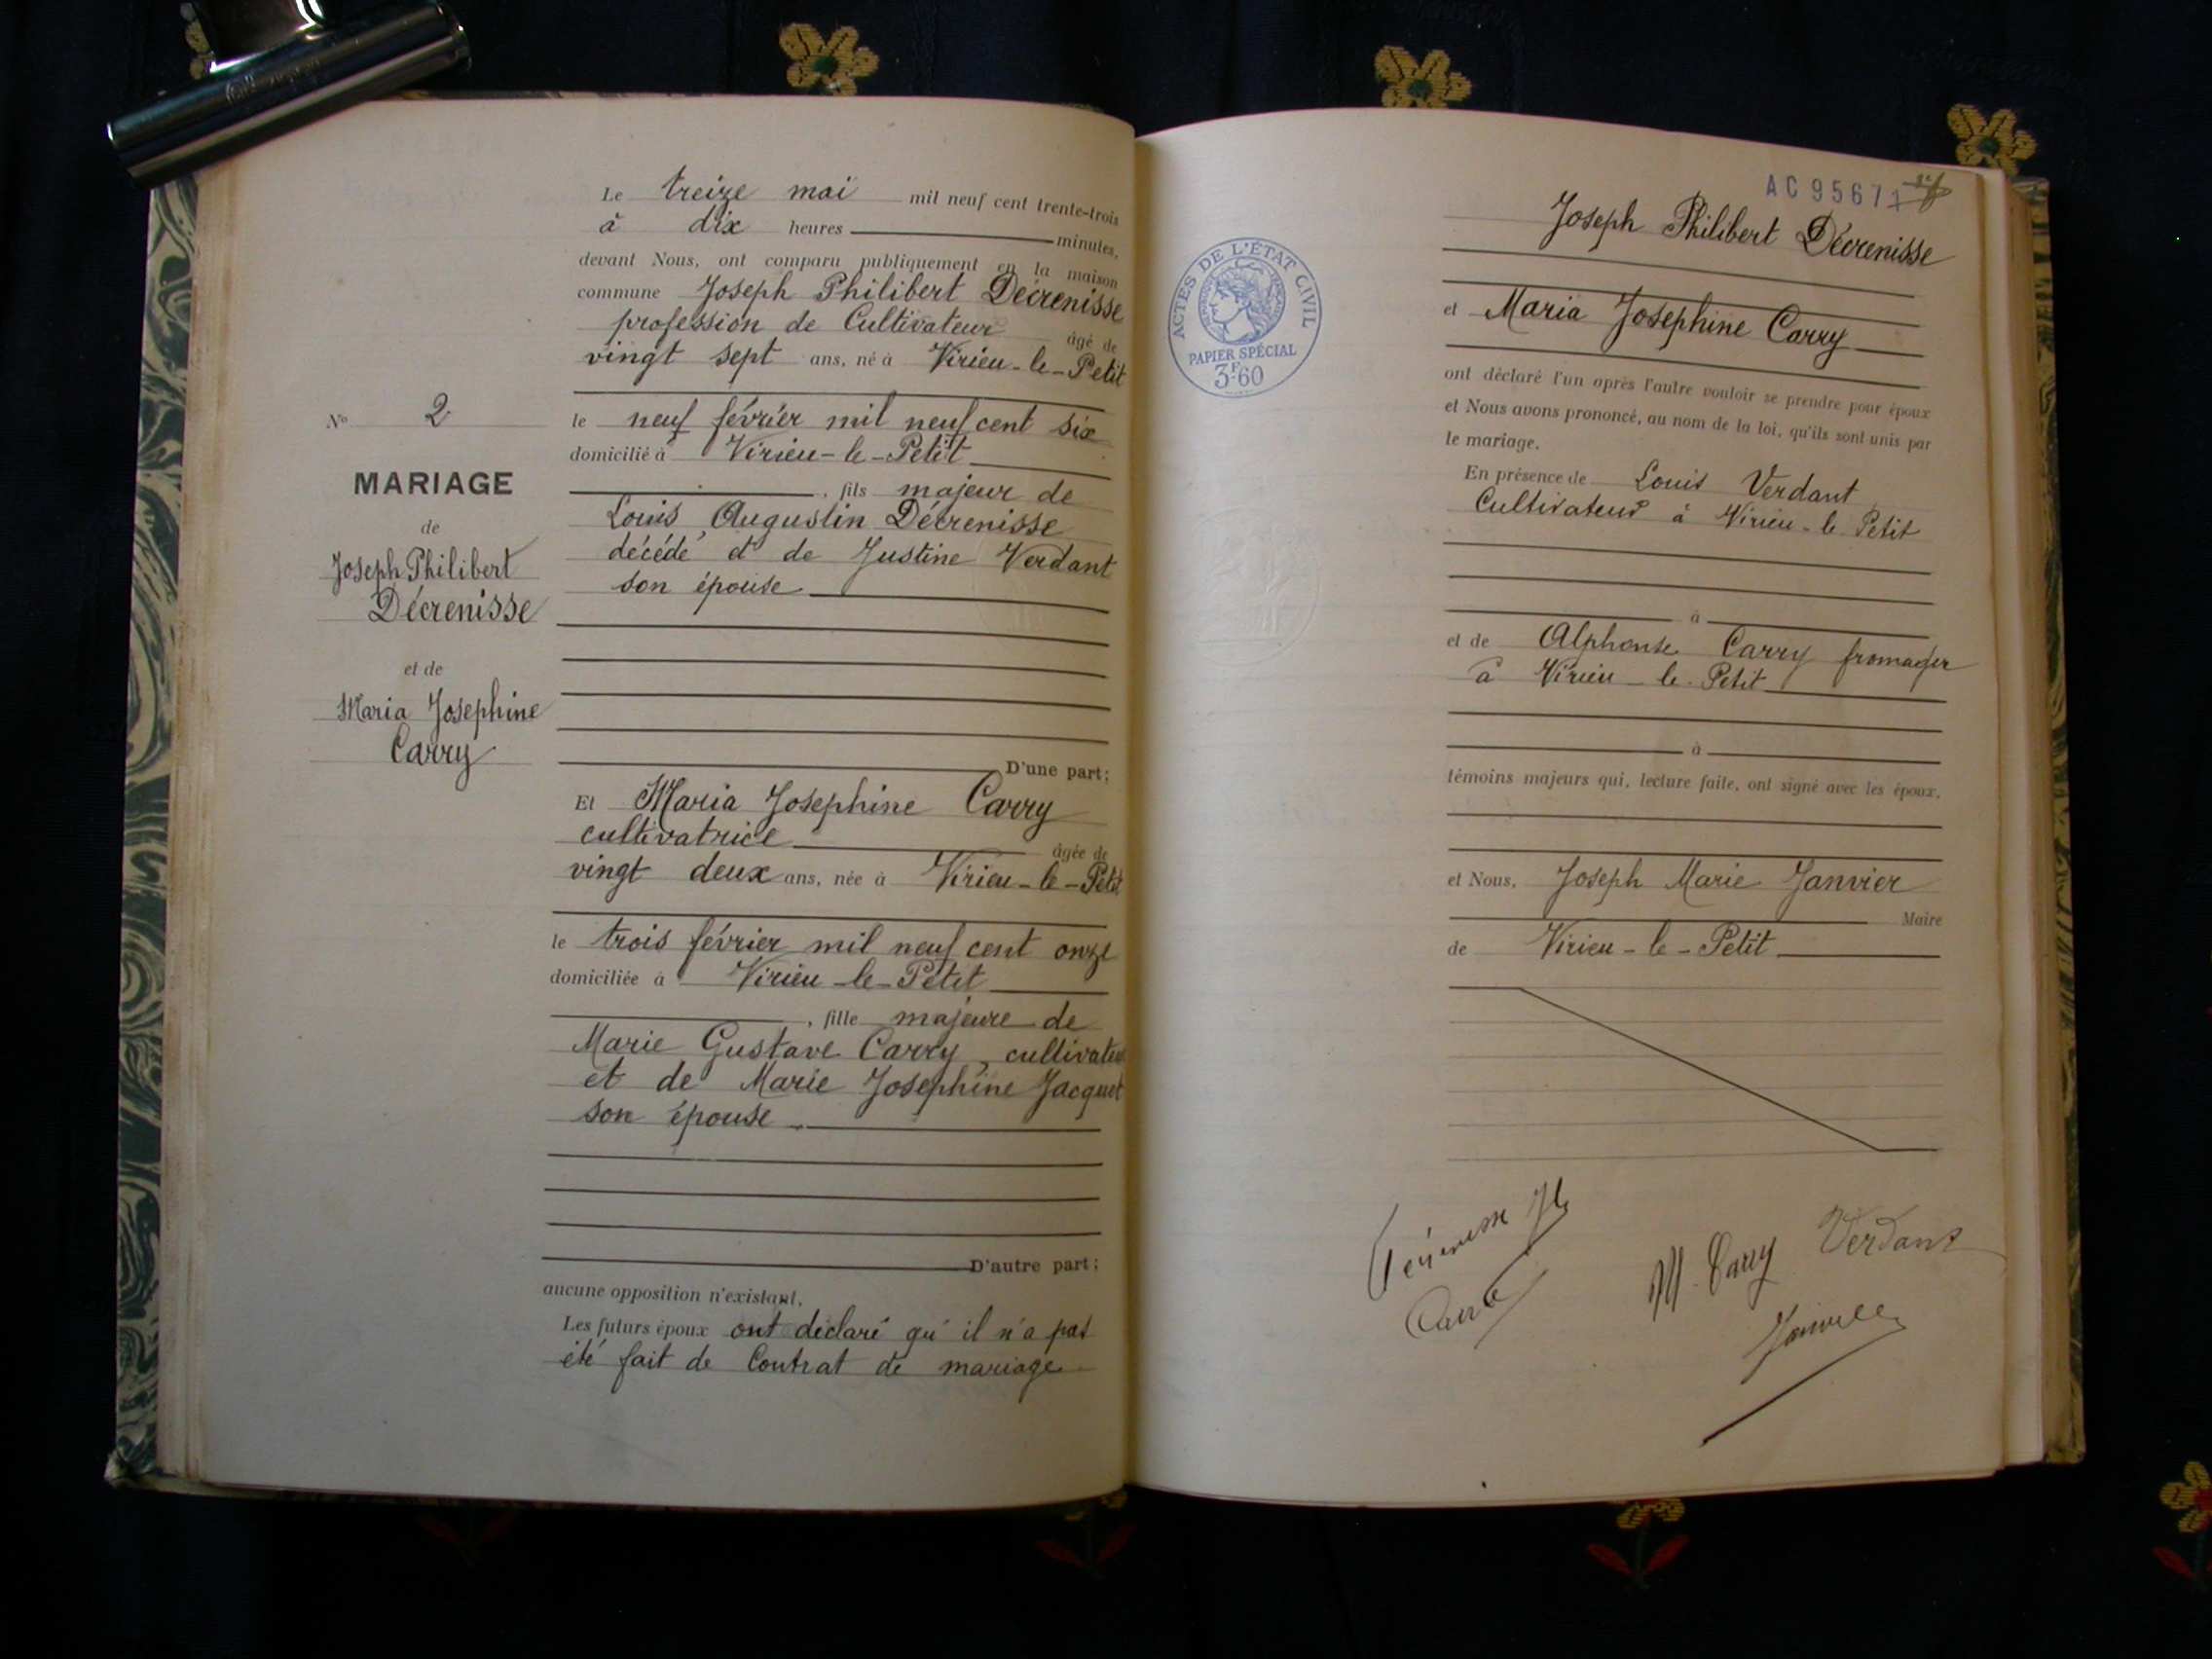 Le treize mai mil neuf cent trente-trois
à dix heures minutes,
devant Nous, ont comparu publiquement en la maison
commune Joseph Philibert Décrenisse
profession de Cultivateur âgé de
vingt sept ans, né à Virieu-le-Petit
le neuf février mil neuf cent six
domicilié à Virieu-le-Petit
, fils majeur de
Louis Augustin Décrenisse
décédé et de Justine Verdant
son épouse
D'une part;
Et Maria Josephine Carry
cultivatrice âgée de
vingt deux ans, née à Virieu-le-Petit
le trois février mil neuf cent onze
domiciliée à Virieu-le-Petit
, fille majeure de
Marie Gustave Carry, cultivateur
et de Marie Josephine Jacquet
son épouse
D'autre part;
aucune opposition n'existant,
Les futurs époux ont déclaré qu'il n'a pas
été fait de Contrat de mariage
No 2
MARIAGE
de
Joseph Philibert
Décrenisse
et de
Maria Josephine
Carry
AC 95671
ACTES DE L'ÉTAT CIVIL
PAPIER SPÉCIAL
3F60
Joseph Philibert Décrenisse
et Maria Josephine Carry
ont déclaré l'un après l'autre vouloir se prendre pour époux
et Nous avons prononcé, au nom de la loi, qu'ils sont unis par
le mariage.
En présence de Louis Verdant
Cultivateur à Virieu-le Petit
à
et de Alphonse Carry fromager
à Virieu-le-Petit
à
témoins majeurs qui, lecture faite, ont signé avec les époux.
et Nous, Joseph Marie Janvier
Maire
de Virieu-le-Petit
M. Carry Verdant